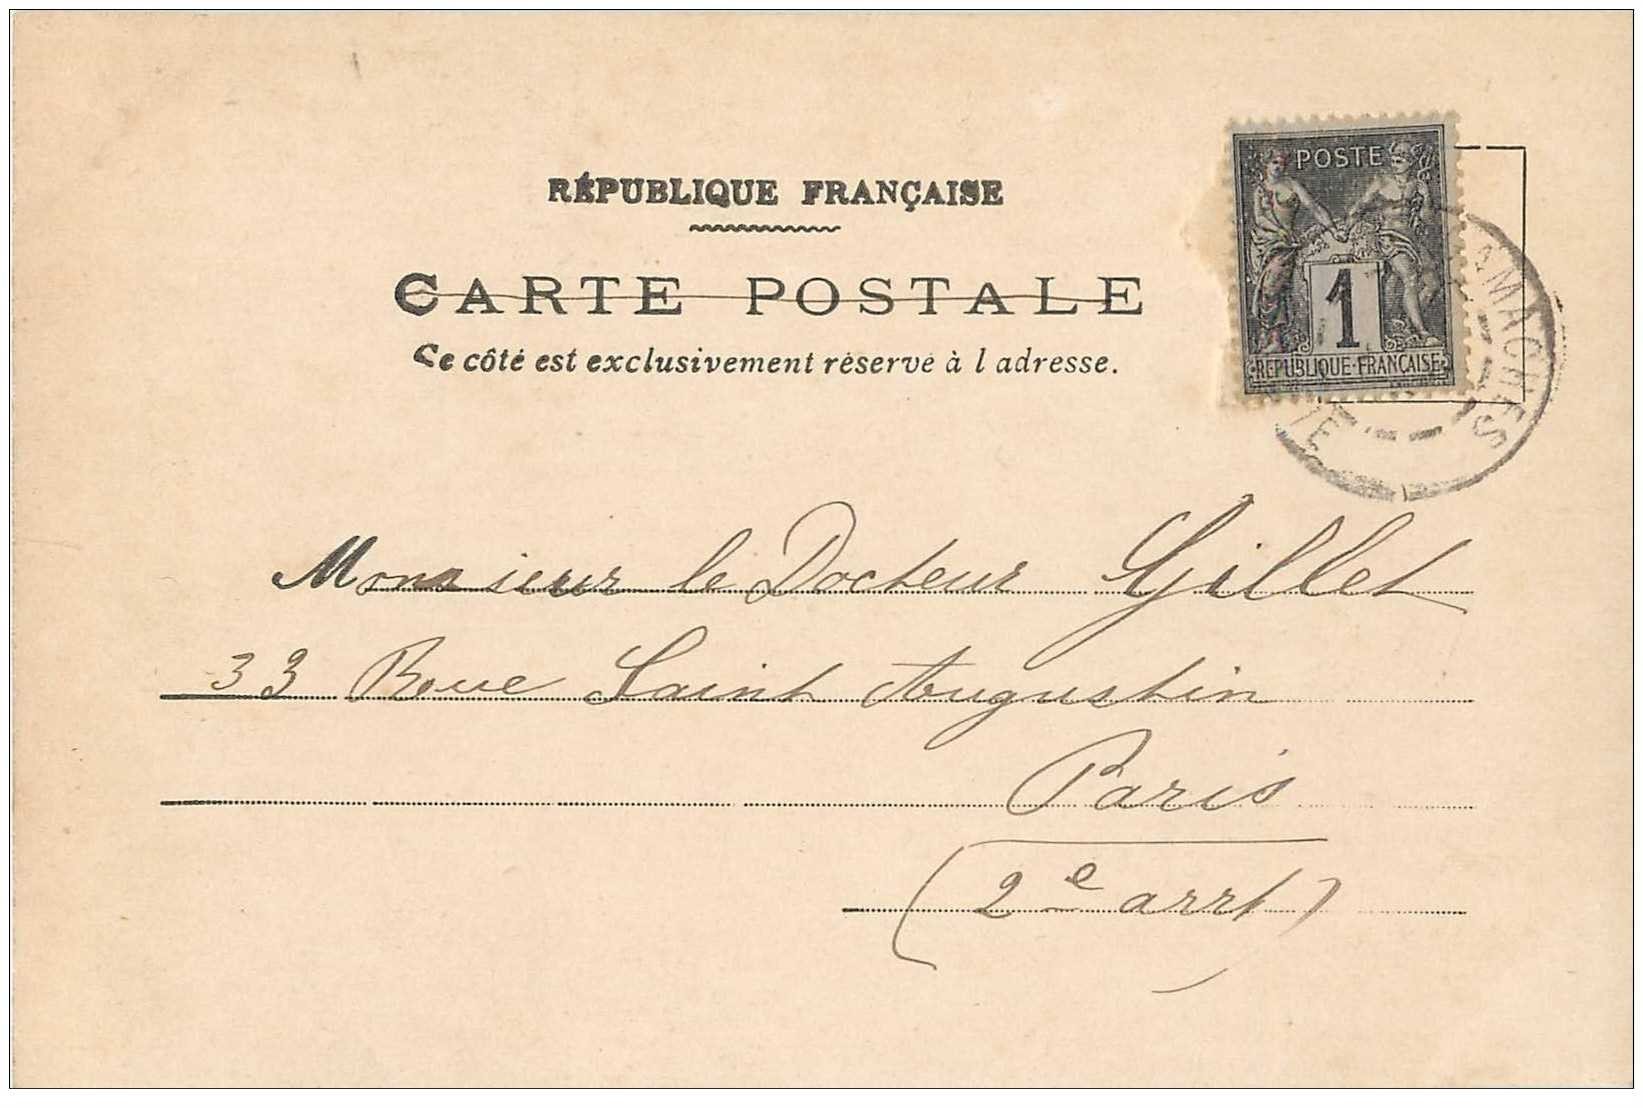 RÉPUBLIQUE FRANÇAISE
CARTE POSTALE
Ce côté est exclusivement réservé à l adresse.
POSTE
1
REPUBLIQUE·FRANÇAISE
Monsieur le Docteur Gillet
33 Roue Saint Augustin
Paris
(2e arrt)